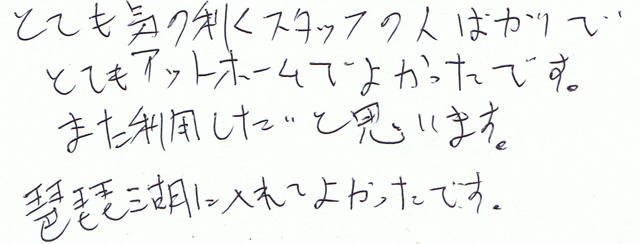 とても気の利くスタッフの人ばかりで
とてもアットホームでよかったです。
また利用したいと思います。
琵琶湖に入れてよかったです。